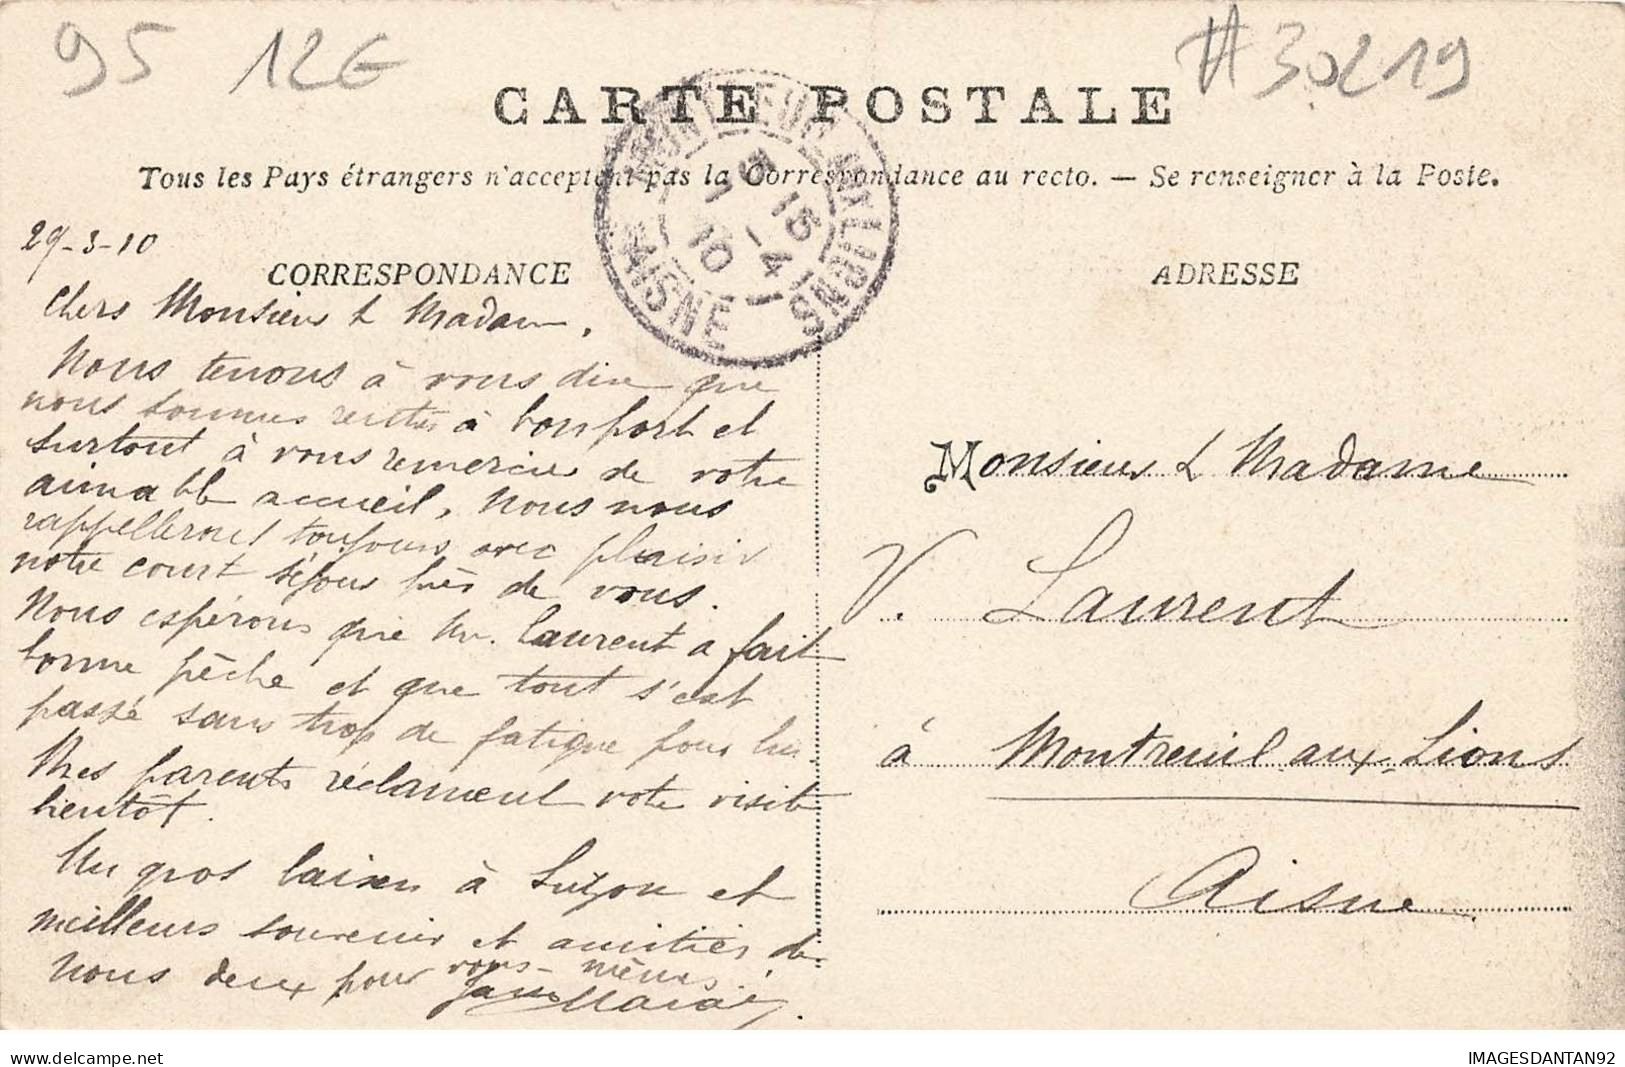 95 12E #30219
CARTE POSTALE
Tous les Pays étrangers n'acceptent pas la Correspondance au recto. — Se renseigner à la Poste.
15 10 -4
AISNE
29-3-10
CORRESPONDANCE
Chers Monsieur & Madame,
Nous tenons à vous dire que
nous sommes rentrés à bon port et
surtout à vous remercier de votre
aimable accueil, nous nous
rappellerons toujours avec plaisir
notre court séjour près de vous.
Nous espérons que Mr. Laurent a fait
bonne pêche et que tout s'est
passé sans trop de fatigue pour lui.
Mes parents réclament votre visite
bientôt.
Un gros baiser à Suzon et
meilleurs souvenirs et amitiés de
nous deux pour vous-mêmes.
ADRESSE
Monsieur & Madame
V. Laurent
à Montreuil-aux-Lions
Aisne
delcampe.net
IMAGESDANTAN92